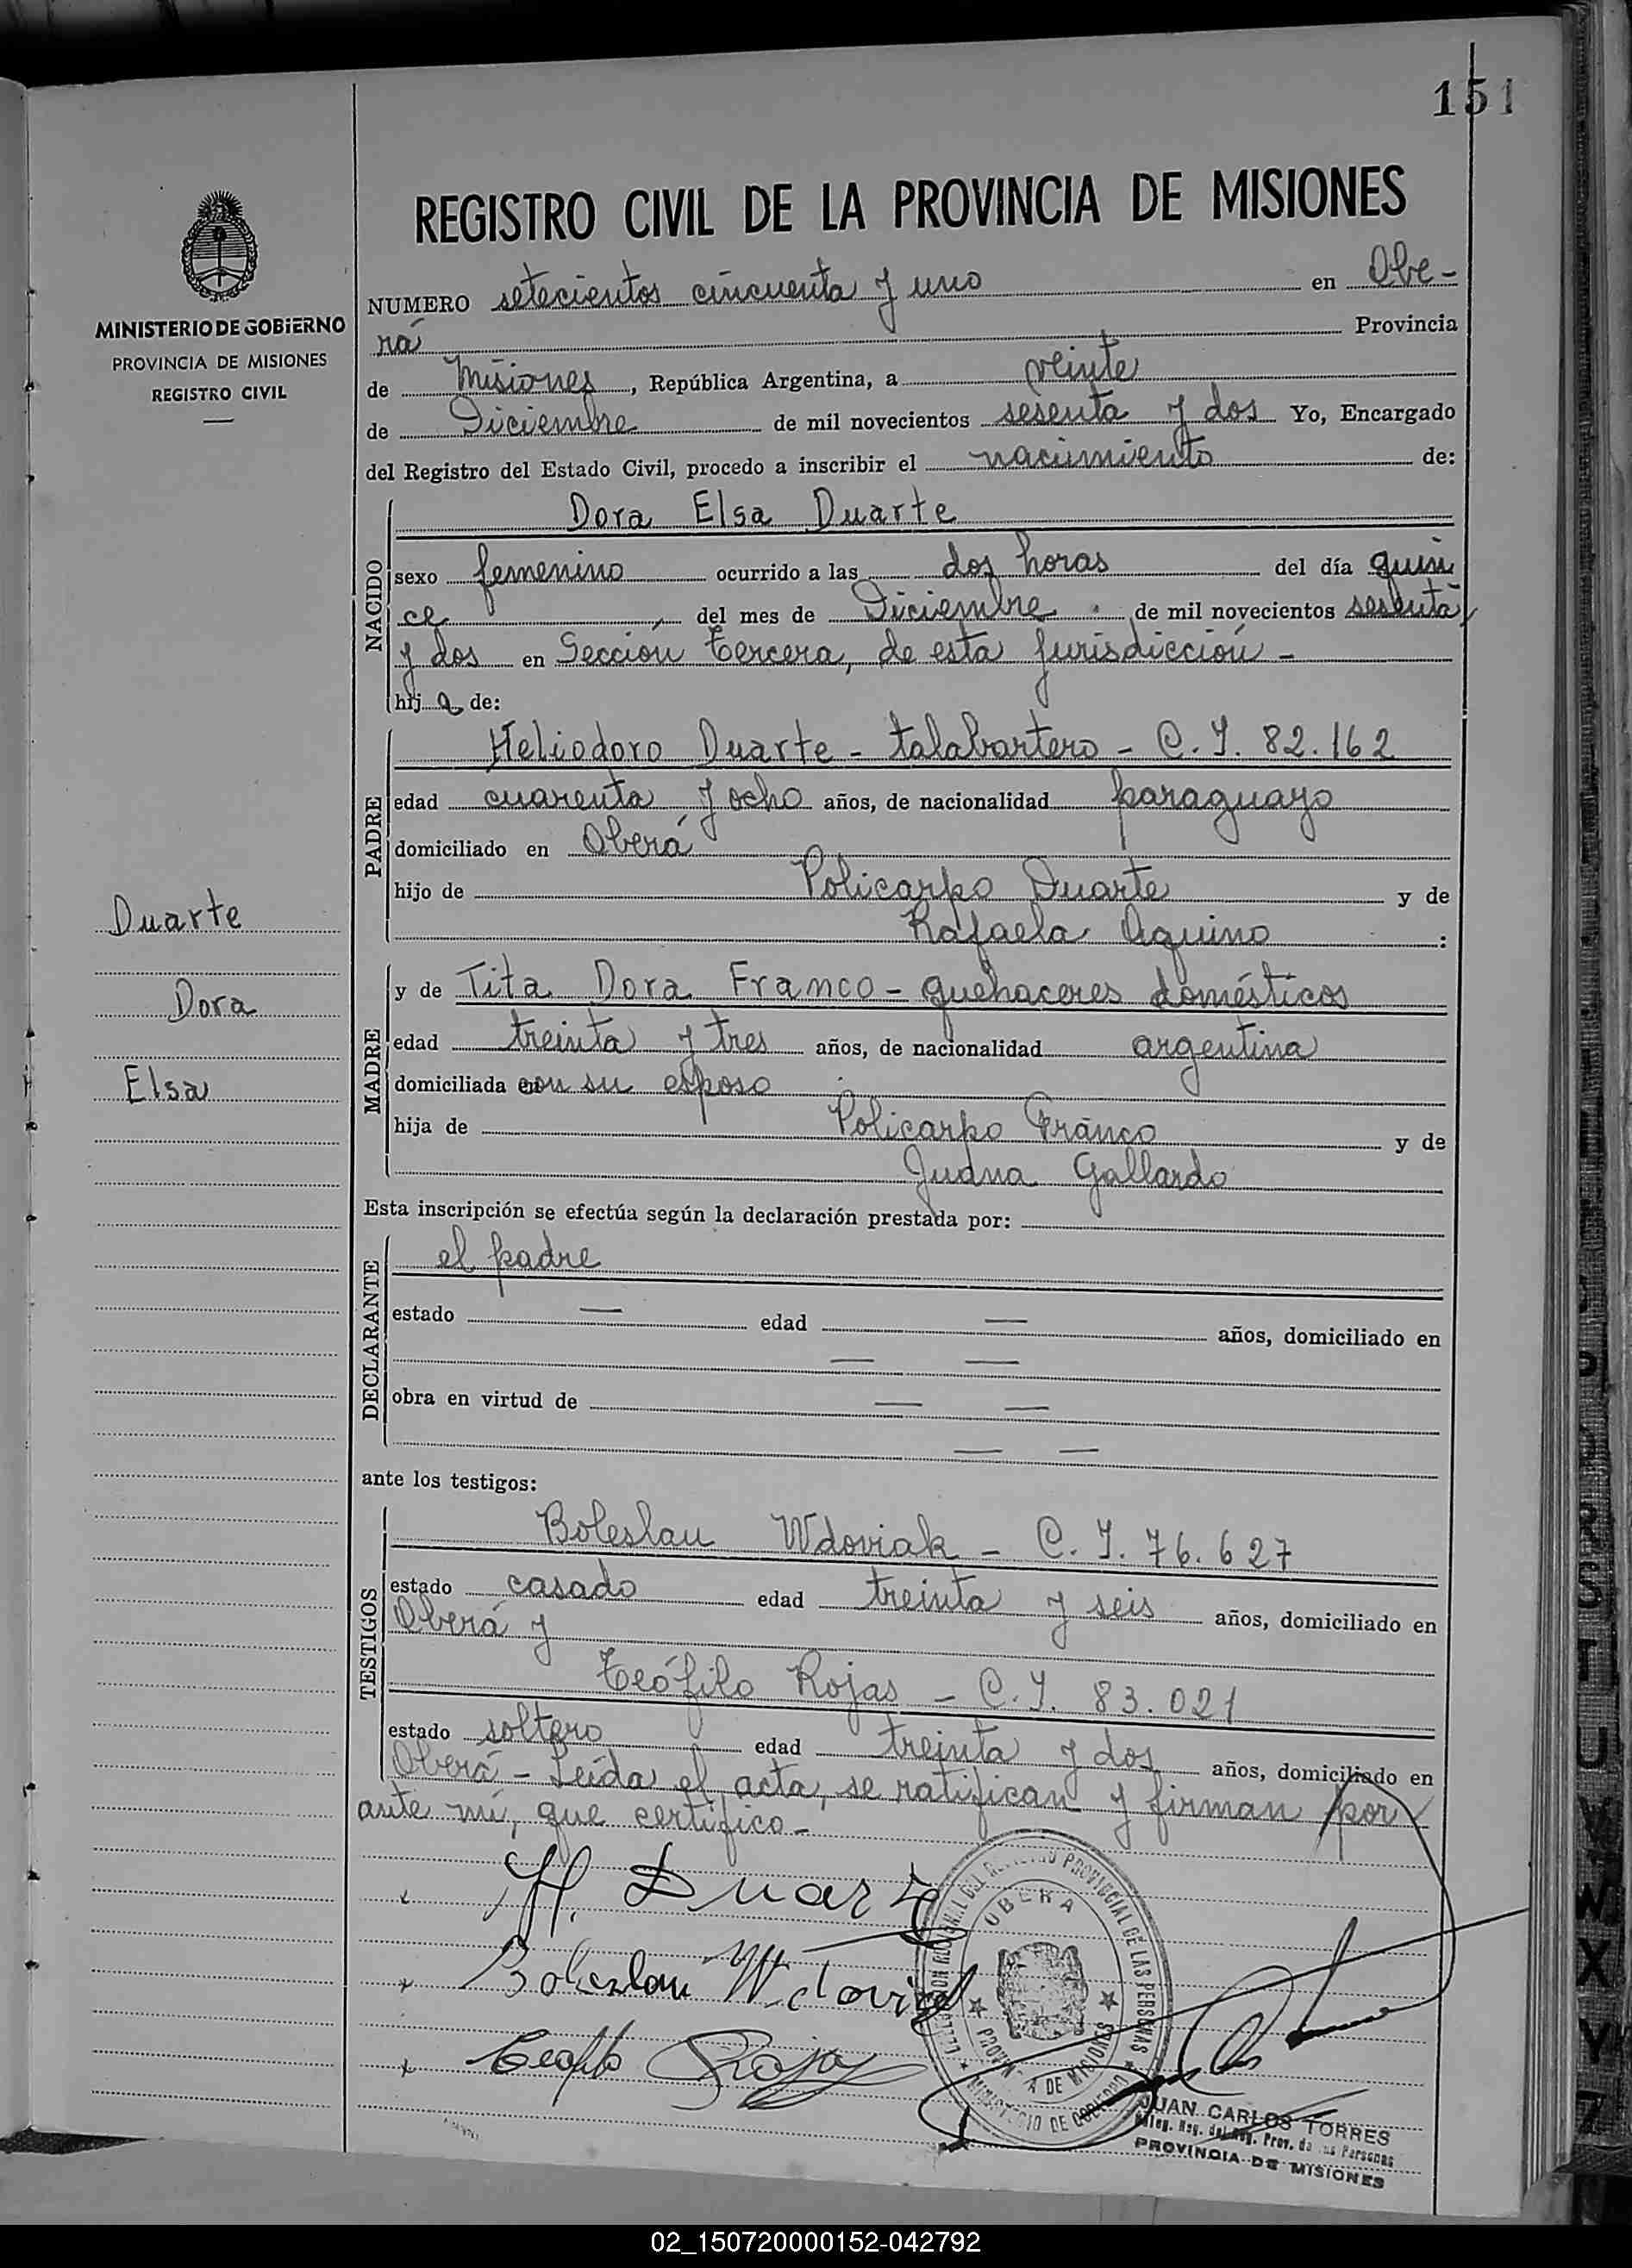 151
REGISTRO CIVIL DE LA PROVINCIA DE MISIONES
MINISTERIO DE GOBIERNO
PROVINCIA DE MISIONES
REGISTRO CIVIL
NUMERO setecientos cincuenta y uno en Obe-
rá Provincia
de Misiones, República Argentina, a veinte
de Diciembre de mil novecientos sesenta y dos Yo, Encargado
del Registro del Estado Civil, procedo a inscribir el nacimiento de:
NACIDO
Dora Elsa Duarte
sexo femenino ocurrido a las dos horas del día quin
ce del mes de Diciembre de mil novecientos sesenta
y dos en Sección tercera, de esta jurisdicción -
hij a de:
PADRE
Heliodoro Duarte - talabartero - C.I. 82.162
edad cuarenta y ocho años, de nacionalidad paraguayo
domiciliado en Oberá
hijo de Policarpo Duarte y de
Rafaela Aquino :
Duarte
Dora
Elsa
MADRE
y de Tita Dora Franco - quehaceres domésticos
edad treinta y tres años, de nacionalidad argentina
domiciliada con su esposo
hija de Policarpo Franco y de
Juana Gallardo
Esta inscripción se efectúa según la declaración prestada por:
DECLARANTE
el padre
estado — edad — años, domiciliado en
— —
obra en virtud de — —
— —
ante los testigos:
TESTIGOS
Boleslau Wdoviak - C.I. 76.627
estado casado edad treinta y seis años, domiciliado en
Oberá y
Teófilo Rojas - C.I. 83.021
estado soltero edad treinta y dos años, domiciliado en
Oberá - Leída el acta, se ratifican y firman por
ante mí, que certifico -
H. Duarte
Boleslau Wdoviak
Teofilo Rojas
REGISTRO PROVINCIAL DE LAS PERSONAS
OBERA
PROVINCIA DE MISIONES
MINISTERIO DE GOBIERNO
JUAN CARLOS TORRES
Deleg. Reg. del Reg. Prov. de las Personas
PROVINCIA DE MISIONES
R
S
T
U
V
W
X
Y
Z
02_150720000152-042792